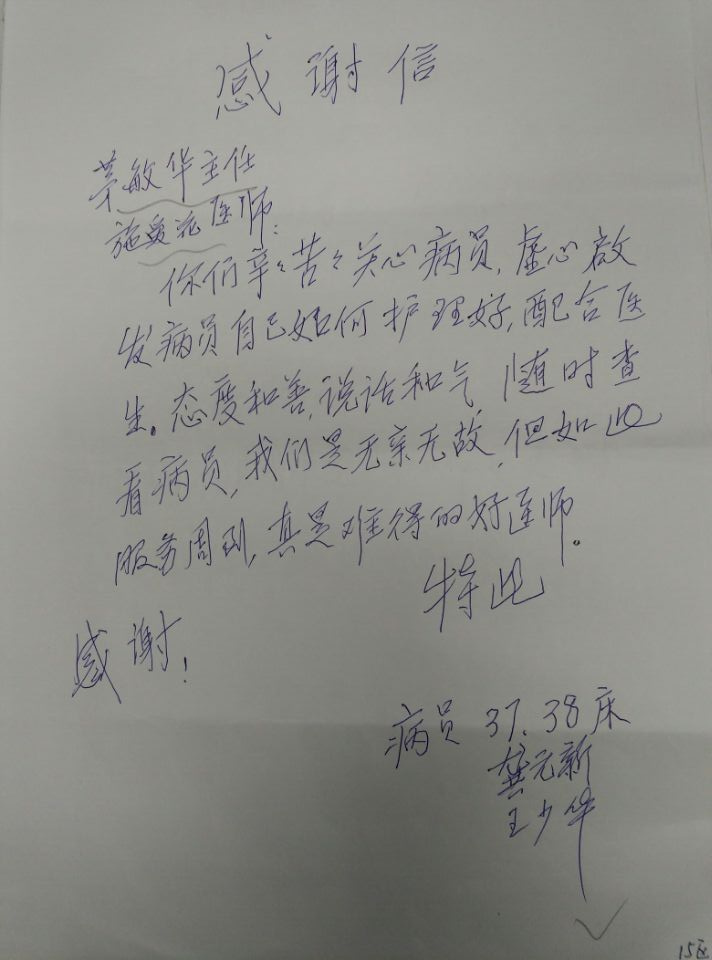 感谢信
茅敏华主任
施爱范医师:
你们辛々苦々关心病员,虚心啟
发病员自己如何护理好,配合医
生。态度和善,说话和气 随时查
看病员,我们是无亲无故,但如此
服务周到,真是难得的好医师。
特此
感谢!
病员 37.38床
龚元新
王少华
15区